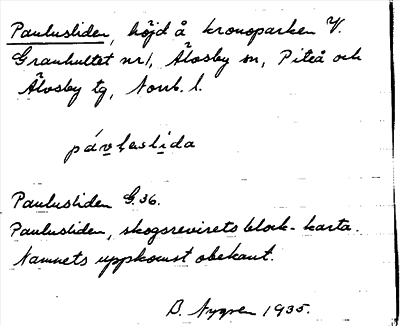 Paulusliden, höjd å kronoparken V.
Granhultet nr 1, Älvsby sn, Piteå och
Älvsby tg, Norrb. l.
pávləslida
Paulusliden G.36.
Paulusliden, skogsrevirets block-karta.
Namnets uppkomst obekant.
B. Nygren 1935.